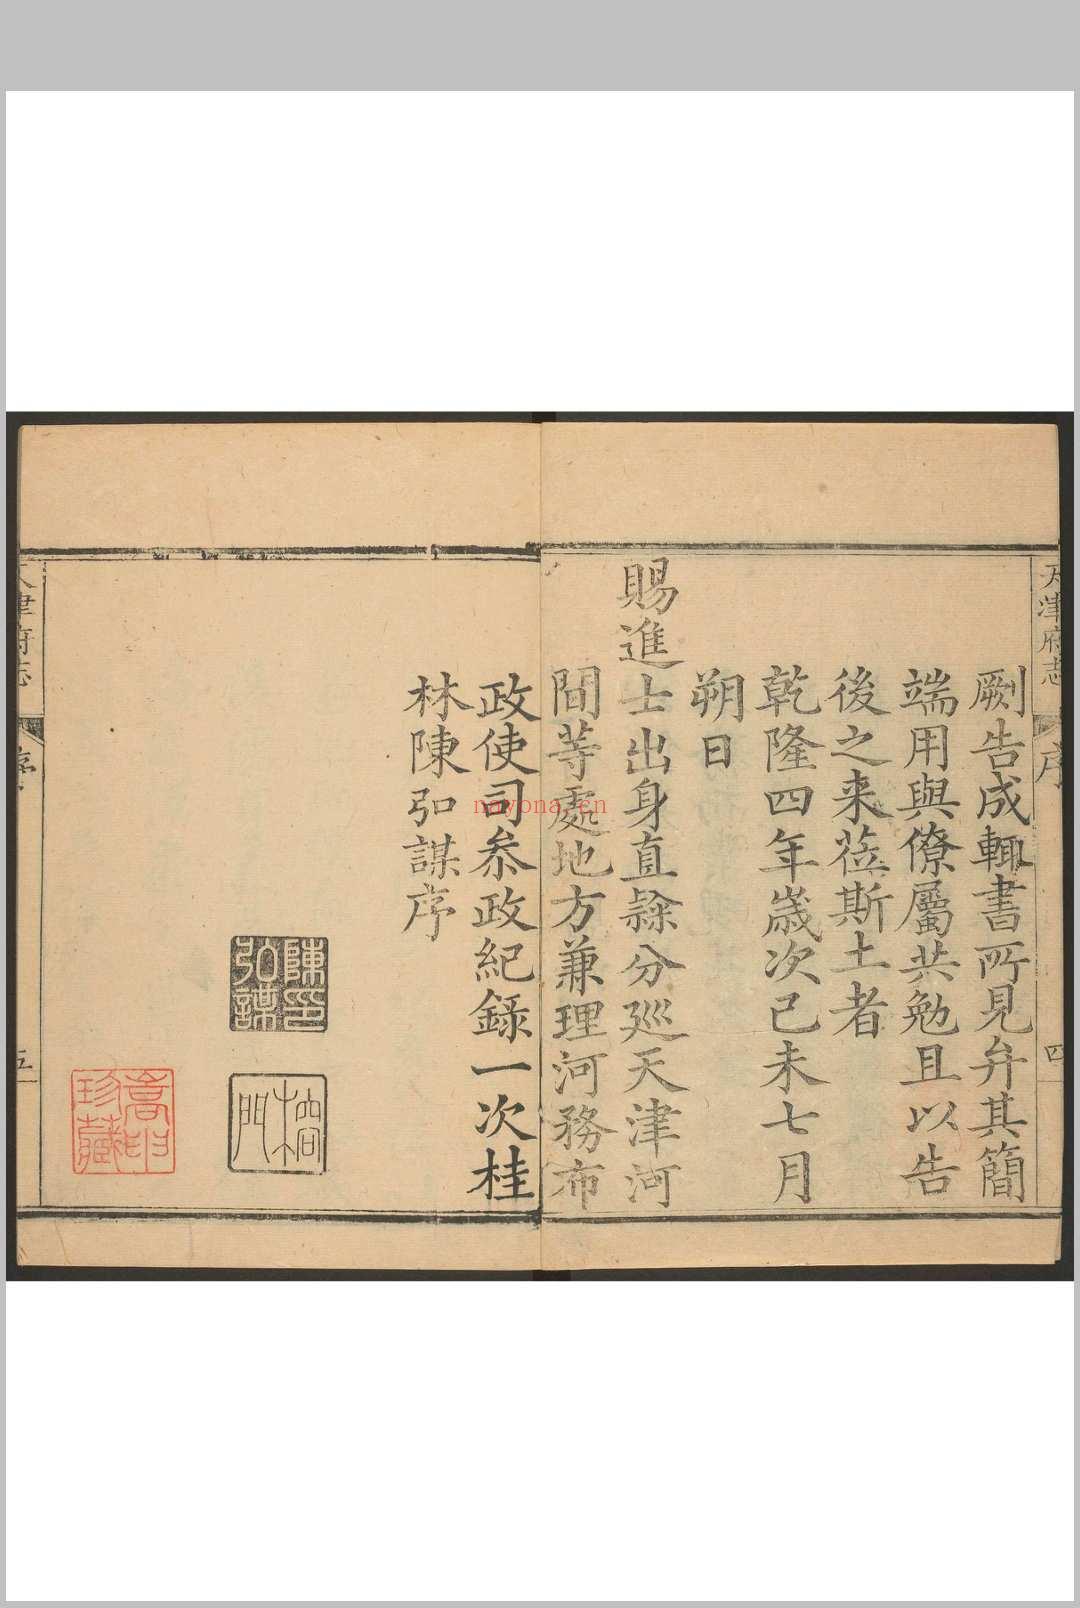 天津府志
序
四
劂告成輒書所見弁其簡
端用與僚屬共勉且以告
後之来莅斯土者
乾隆四年歲次己未七月
朔日
賜進士出身直隸分巡天津河
間等處地方兼理河務布
政使司叅政紀錄一次桂
林陳弘謀序
陳印弘謀
榕門
珍藏
天津府志
序
五
nayona.cn